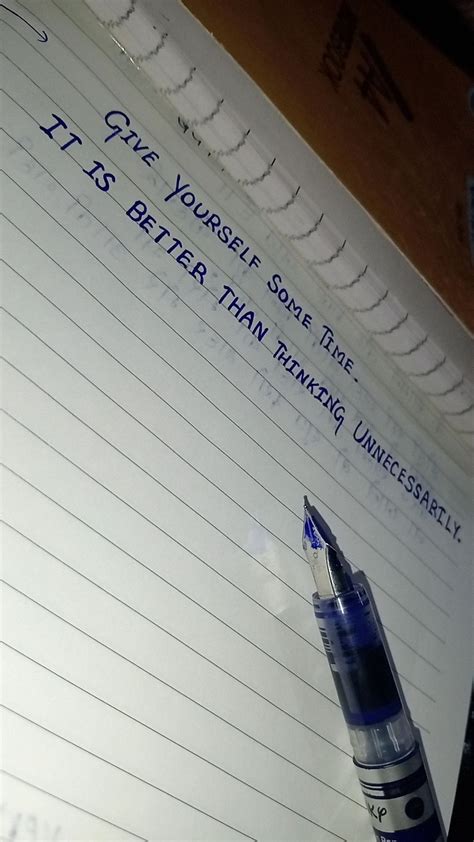 GIVE YOURSELF SOME TIME.
IT IS BETTER THAN THINKING UNNECESSARILY.